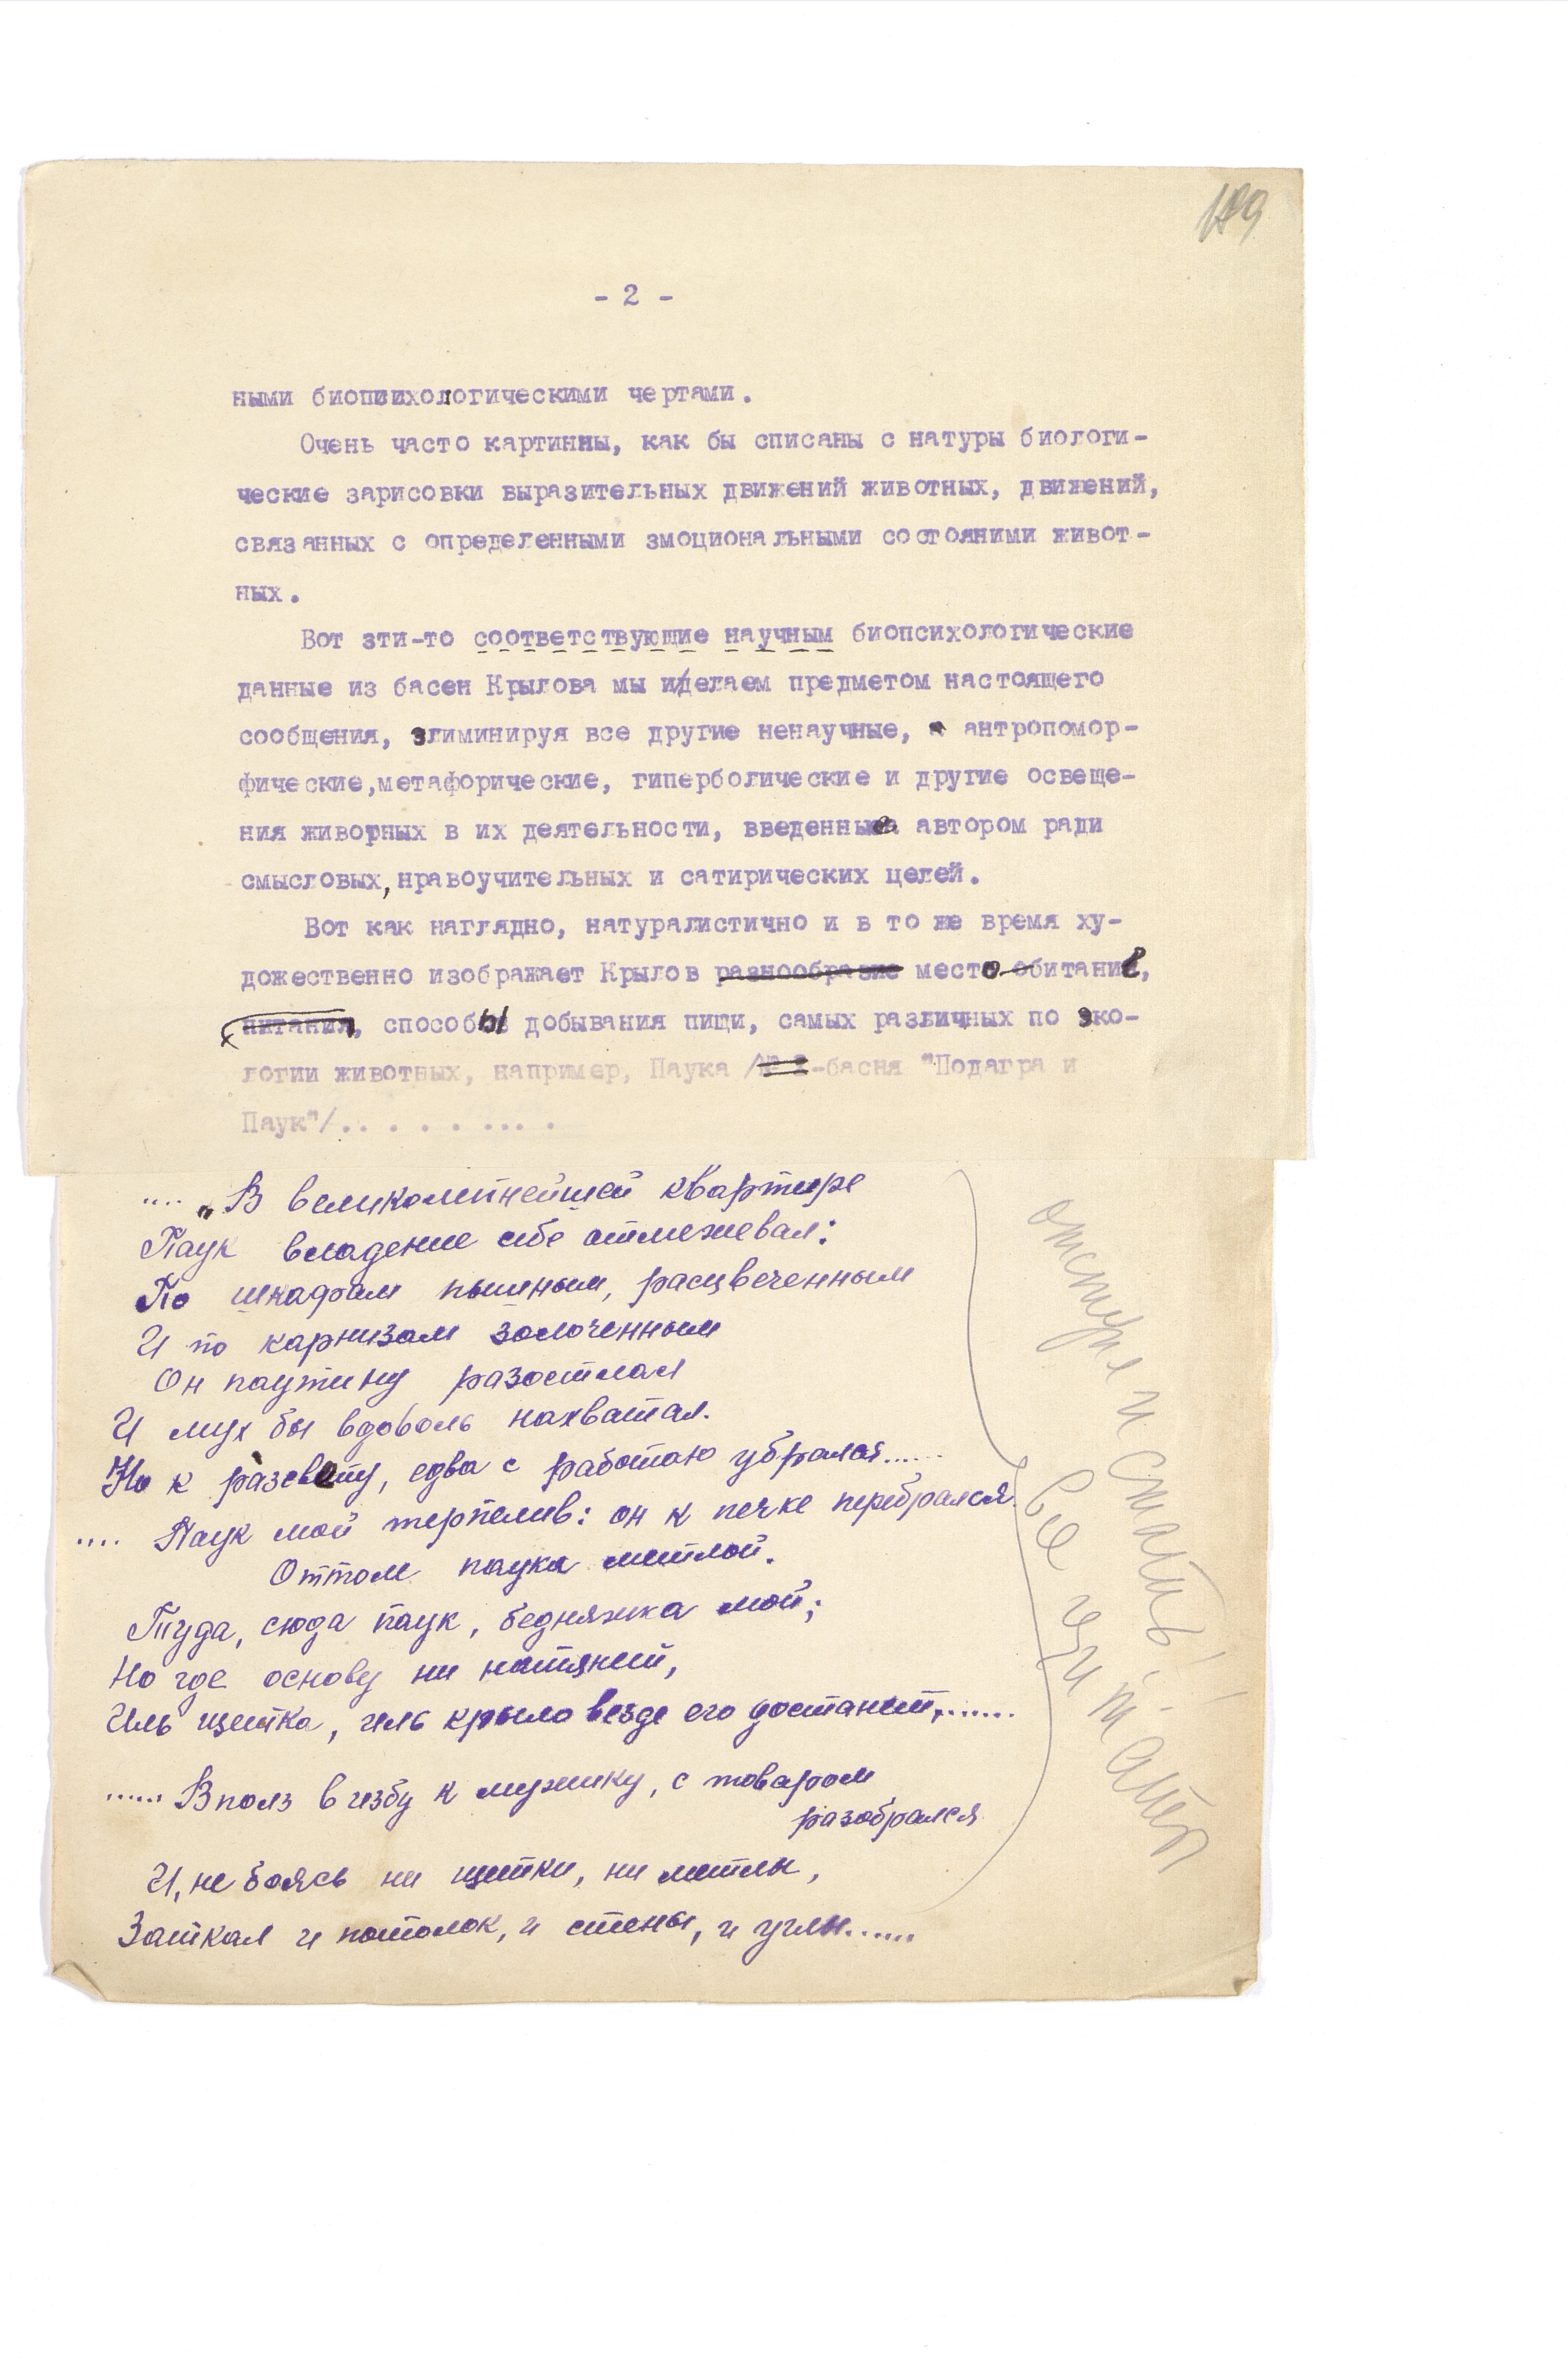 199
- 2 -
ными биопсихологическими чертами.
Очень часто картинны, как бы списаны с натуры биологи-
ческие зарисовки выразительных движений животных, движений,
связанных с определенными змоциональными состояними живот-
ных.
Вот зти-то соответствующие научным биопсихологические
данные из басен Крылова мы и делаем предметом настоящего
сообщения, элиминируя все другие ненаучные, антропомор-
фические,метафорические, гиперболические и другие освеще-
ния животных в их деятельности, введенные автором ради
смысловых, нравоучительных и сатирических целей.
Вот как наглядно, натуралистично и в то же время ху-
дожественно изображает Крылов разнообразие место-обитание,
питания, способы добывания пищи, самых различных по эко-
логии животных, например, Паука /№ 1-басня "Подагра и
Паук"/. . . . . ... .
.... „В великолепнейшей квартире
Паук владение себе отмежевал:
По шкафам пышным, расцвеченным
И по карнизам золоченным
Он паутину разостлал
И мух бы вдоволь нахватал.
Но к разсвету, едва с работаю убрался......
.... Паук мой терпелив: он к печке перебрался.
Оттоле паука метлой.
Туда, сюда паук, бедняжка мой;
Но где основу ни натянет,
Иль щетка, иль крыло везде его достанет,.......
...... Вполз в избу к мужику, с товаром
разобрался
И, не боясь ни щетки, ни метлы,
Заткал и потолок, и стены, и углы......
отступ и сжать!
все цитаты